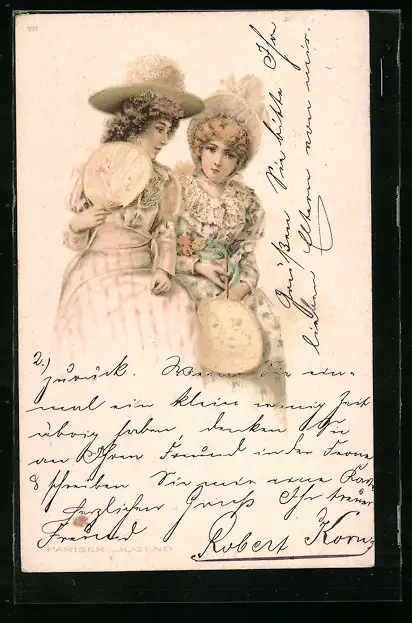 2.) zurück. Wenn Sie ein-
mal ein klein wenig Zeit
übrig haben denken Sie
an Ihren Freund in der Ferne
& schreiben Sie mir eine Karte
Herzlichen Gruss Ihr treuer
Freund
Robert Korn
PARISER JUGEND
Grüßen Sie bitte Ihre
lieben Eltern von mir.